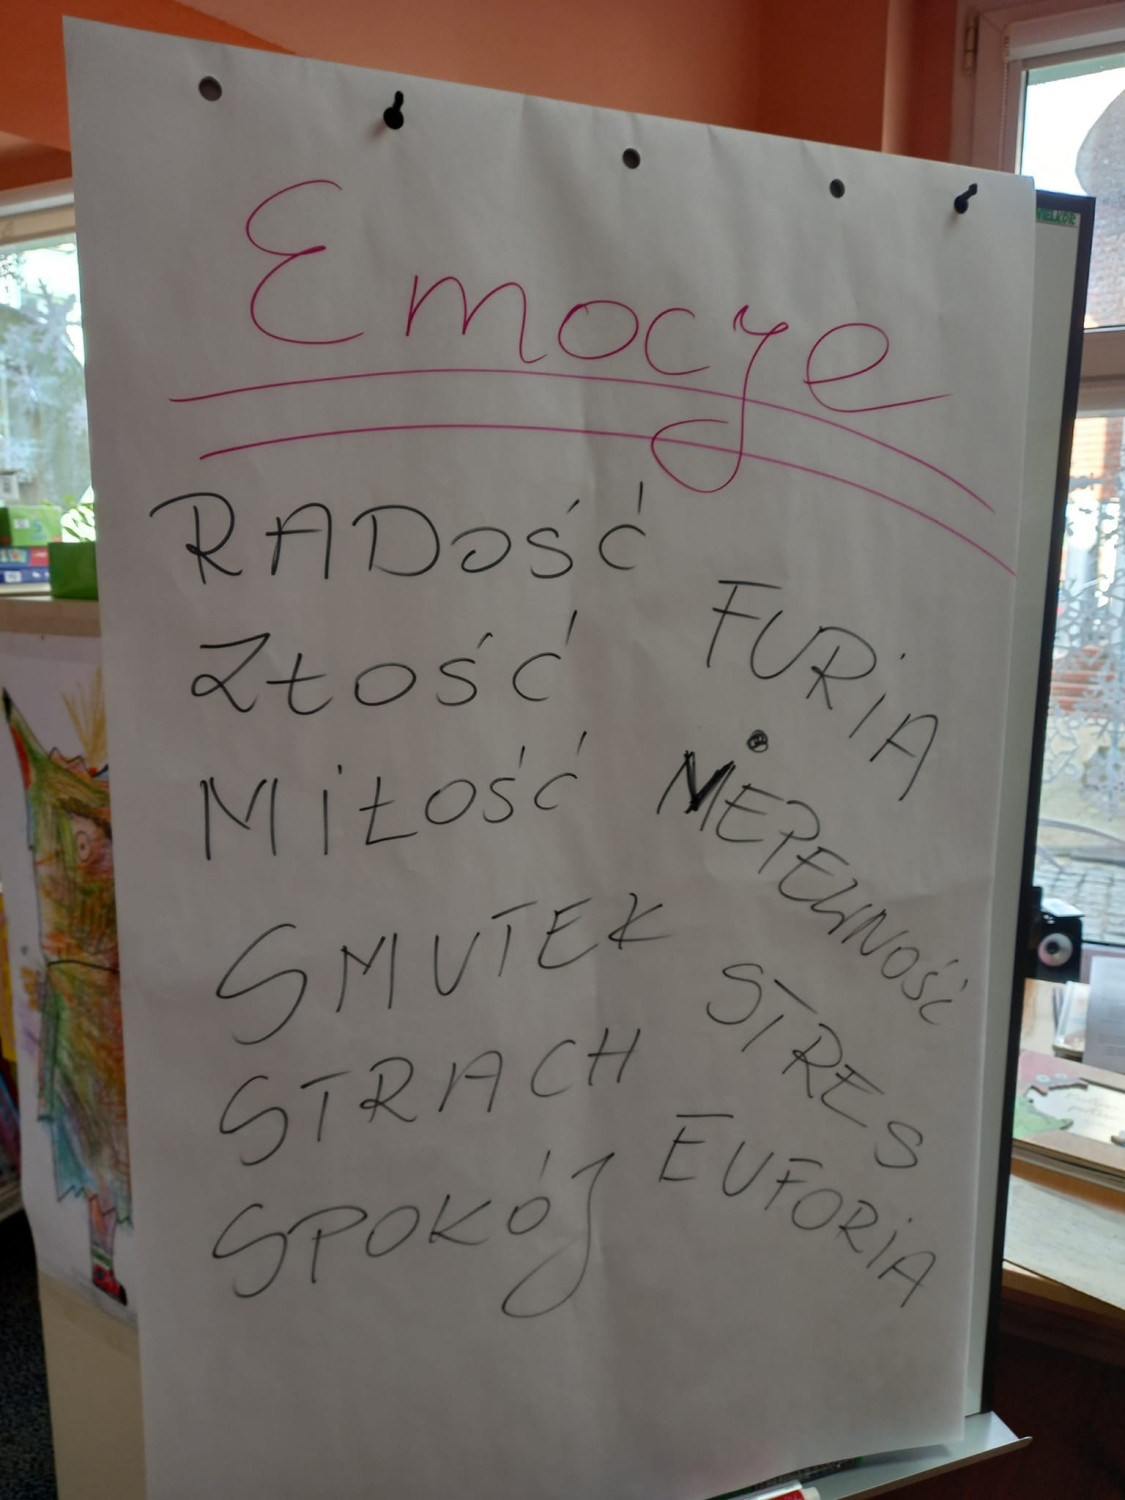 Emocje
RADOŚĆ
ZŁOŚĆ
MiŁOŚĆ
SMUTEK
STRACH
SPOKÓJ
FURiA
NiEPEWNOŚĆ
STRES
EUFORiA